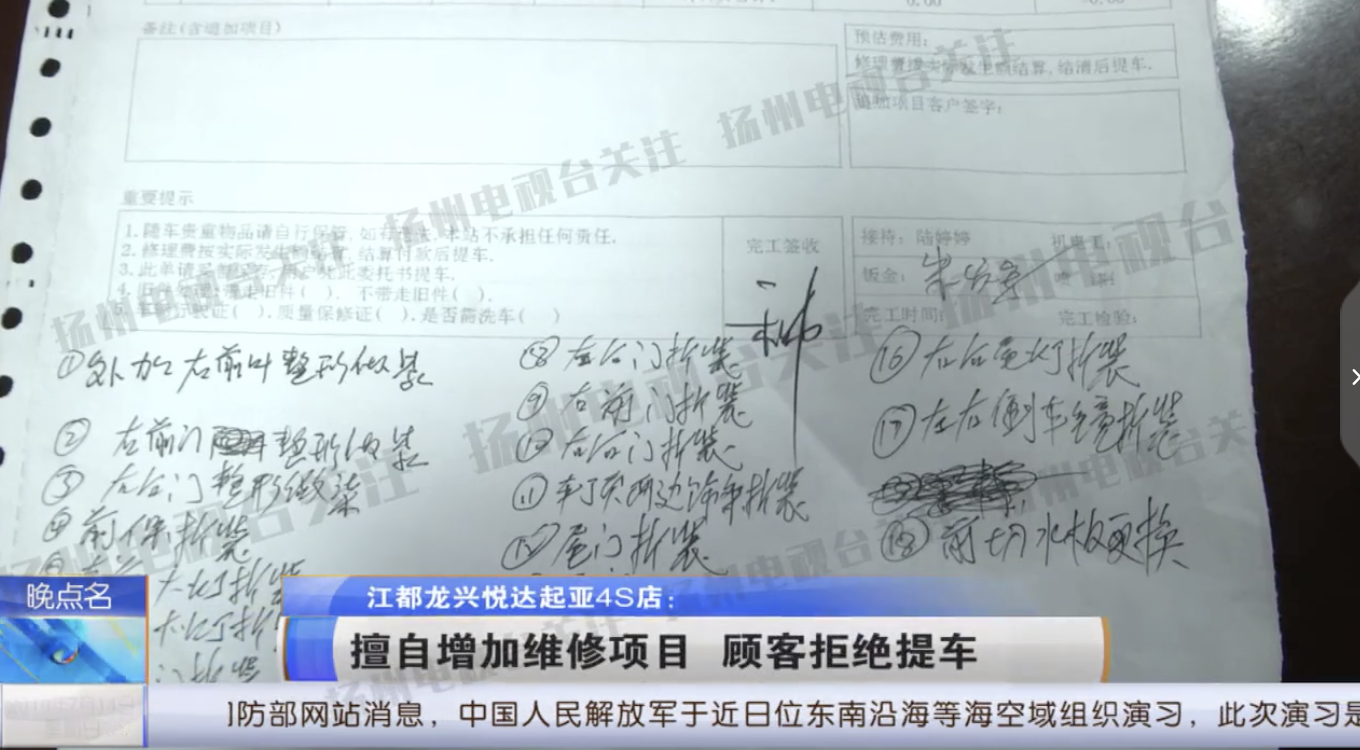 备注(含追加项目)
预估费用:
修理费按实际发生额结算,结清后提车.
追加项目客户签字:
重要提示
1.随车贵重物品请自行保管,如有遗失,本站不承担任何责任.
2.修理费按实际发生额结算,结算付款后提车.
3.此单请妥善保存,用户凭此委托书提车.
4.旧件处理:带走旧件( ). 不带走旧件( ).
质量保修证( ).是否需洗车( )
完工签收
接待: 陆婷婷
机电工:
钣金:
完工时间:
完工检验:
①外加 左前叶整形做漆
② 左前门 整形做漆
③ 左后门整形做漆
④ 前保拆装
大灯拆装
大灯拆
门拆装
⑧ 左后门拆装
⑨ 右前门拆装
⑩ 右后门拆装
⑪ 车顶两边饰条拆装
⑫ 尾门拆装
⑯ 左右尾灯拆装
⑰ 左右倒车镜拆装
⑱ 前切水板更换
扬州电视台关注
晚点名
江都龙兴悦达起亚4S店:
擅自增加维修项目 顾客拒绝提车
防部网站消息，中国人民解放军于近日位东南沿海等海空域组织演习，此次演习是